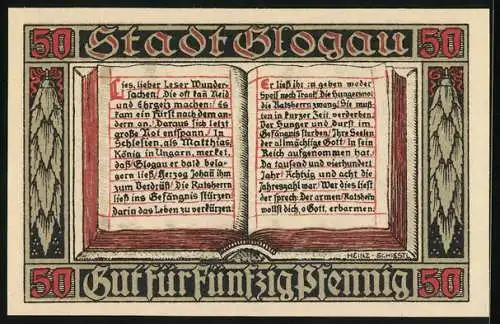 50 Stadt Glogau 50
Lies, lieber Leser Wunder-
sachen / Die oft tañ Neid
und Ehrgeiz machen: / Es
kam ein Fürst nach dem an-
dern an. / Daraus sich letzt
große Not entspann. / In
Schlesien, als Matthias,
König in Ungarn, merket,
daß / Glogau er bald bela-
gern ließ / Herzog Johañ ihm
zum Verdrüß / Die Ratsherrn
ließ ins Gefängnis stürzen.
Darin das Leben zu verkürzen.
Er ließ ihn'n geben weder
Speiß noch Trank / Die Hungersnot
die Ratsherrn zwang / Sie muß-
ten in kurzer Zeit verderben.
Der Hunger und Durst im
Gefängnis sturben / Ihre Seelen
der allmächtige Gott / In sein
Reich aufgenommen hat.
Da tausend und vierhundert
Jahr / Achtzig und acht die
Jahreszahl war / Wer dies liest
der sprech: Der armen / Ratsherrn
wollst dich, o Gott, erbarmen.
HEINZ-SCHIESTL
50 Gut für Fünfzig Pfennig 50